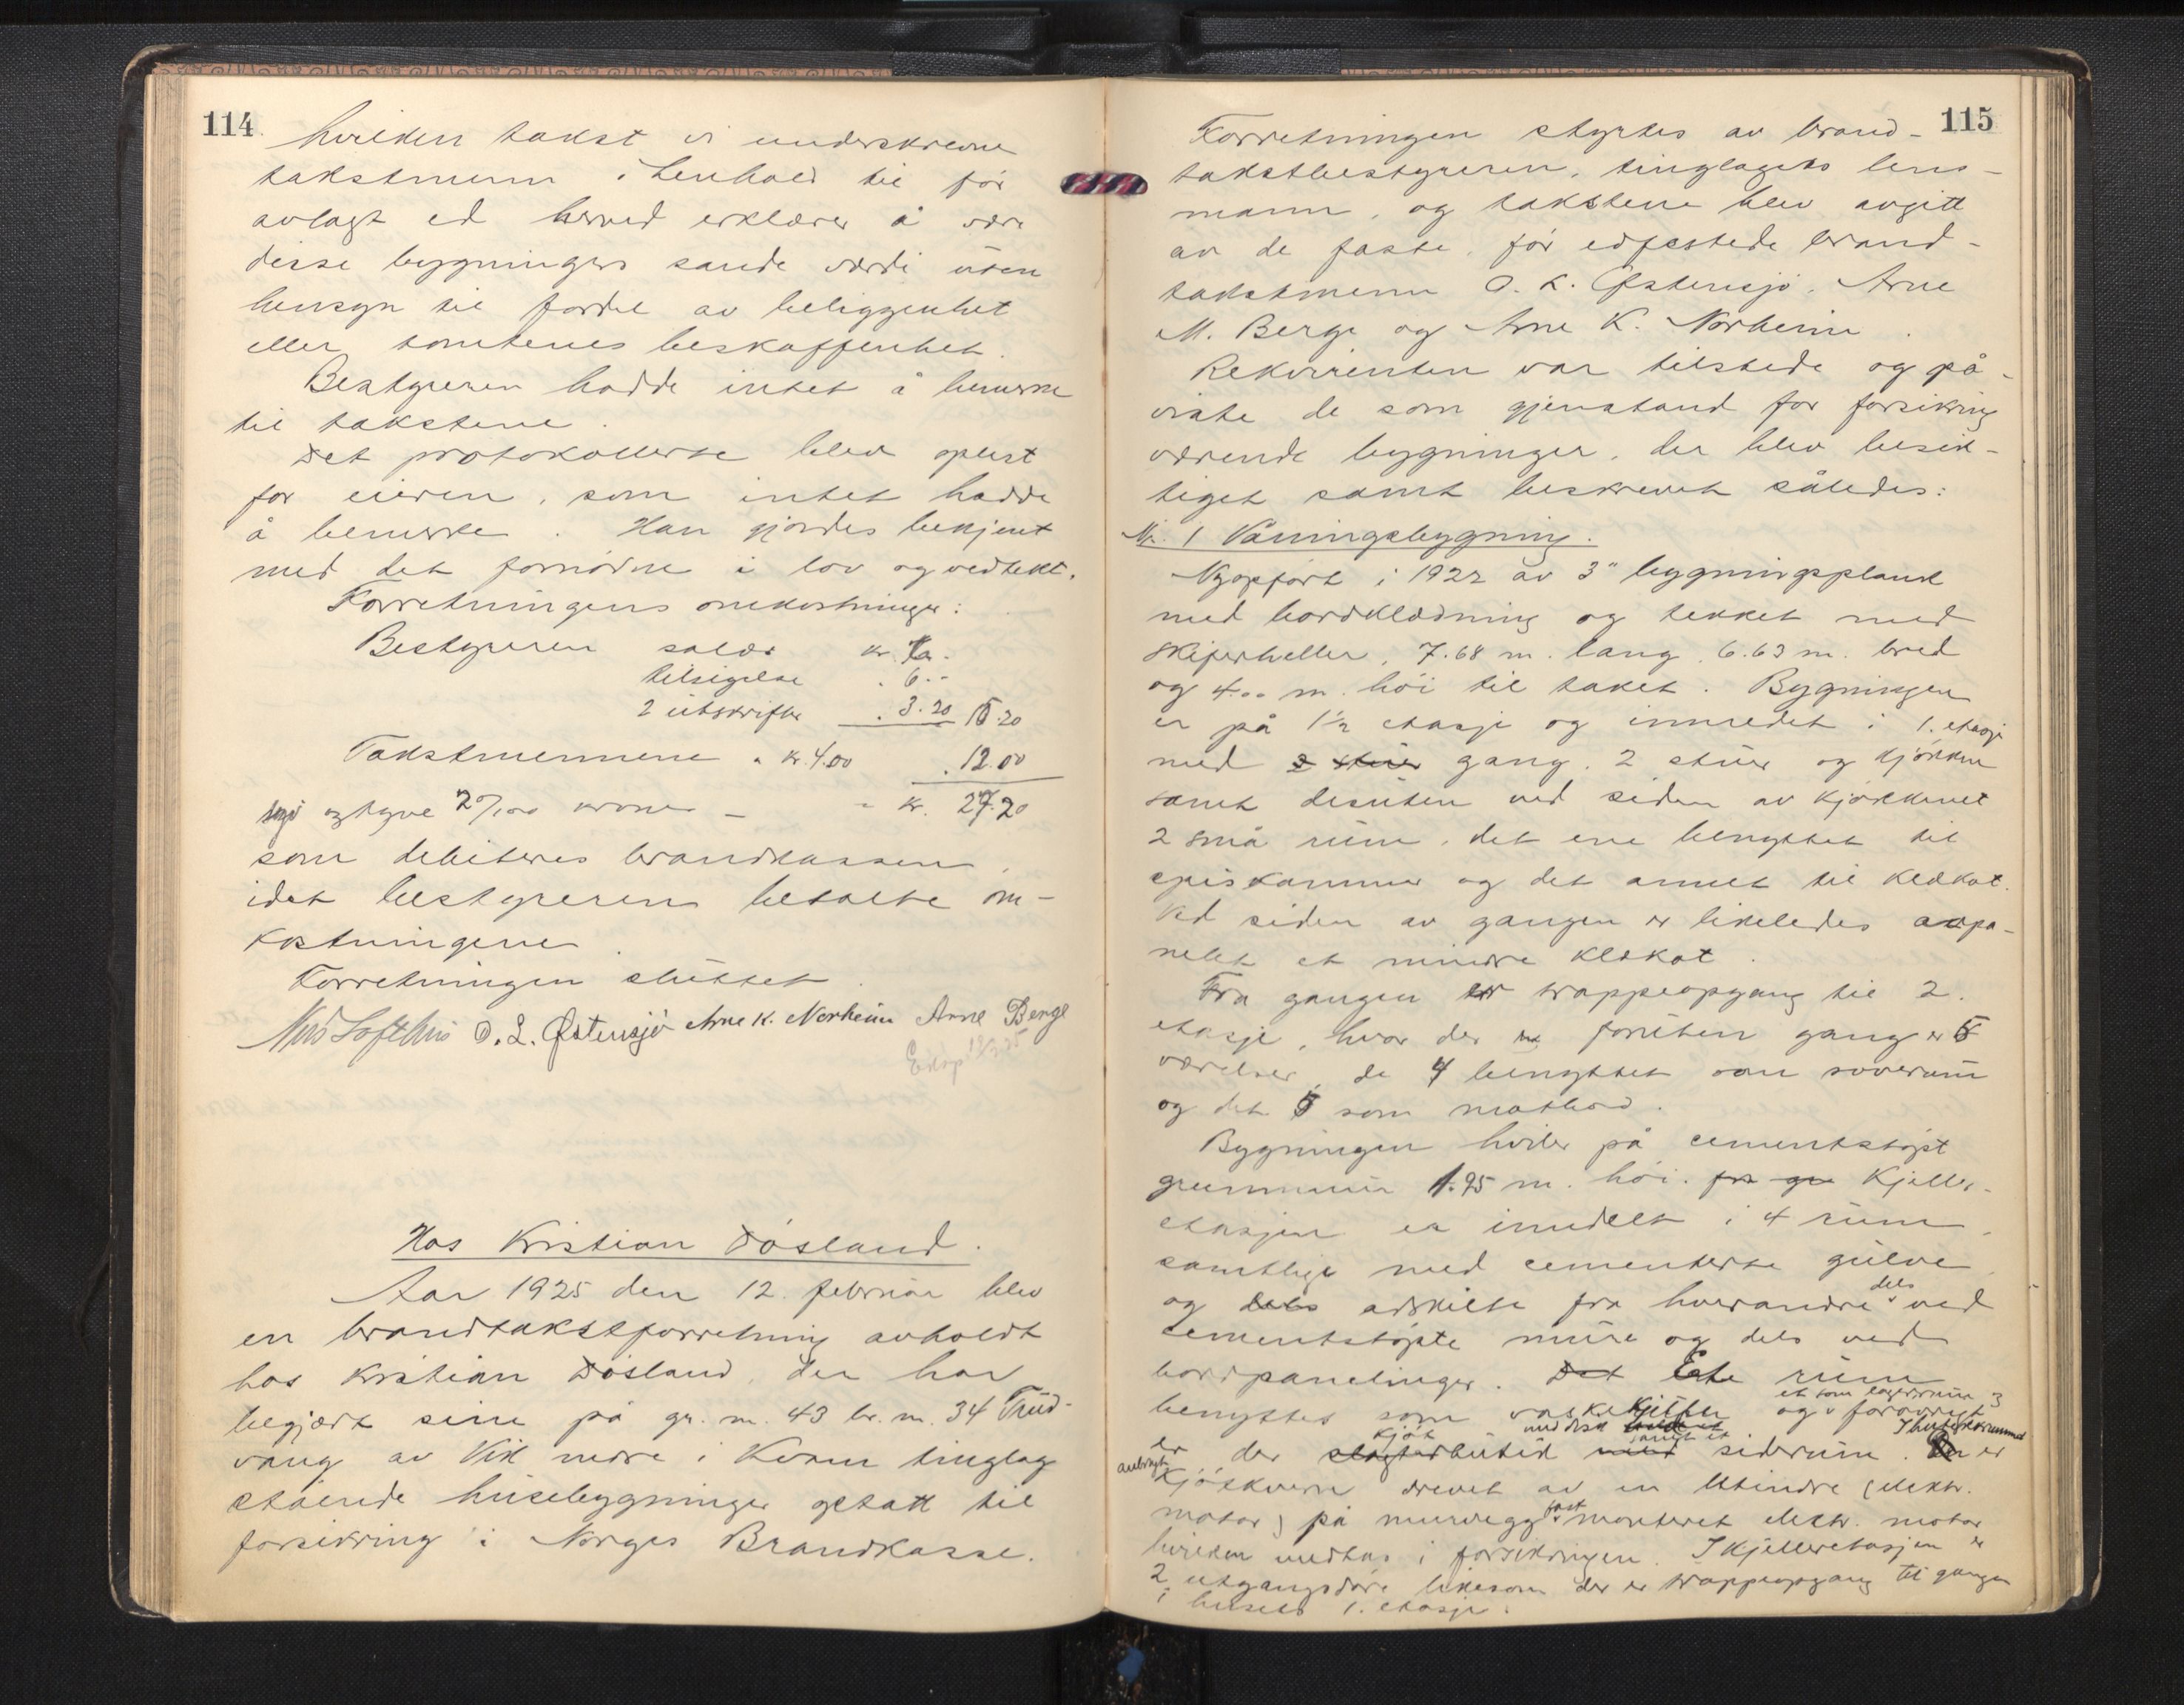 114
hvilken takst vi underskrevne
takstmenn i henhold til før
avlagt ed herved erklærer å være
disse bygningers sande værdi uten
hensyn til fordel av beliggenhet
eller tomtenes beskaffenhet.
Bestyreren hadde intet å bemerke
til takstene.
Det protokollerte blev oplest
for eieren, som intet hadde
å bemerke. Han gjordes bekjent
med det fornødne i lov og vedtekt.
Forretningens omkostninger:
Bestyreren salær kr.
tilsigelse . 6.-
2 utskrifter . 3.20 15.20
Takstmennene a kr. 4.00 . 12.00
syv og tyve 20/100 kroner - kr. 27.20
som debiteres brandkassen
idet bestyreren betalte om-
kostningene.
Forretningen sluttet.
Nils Softhus O. L. Østensjø Arne K. Norheim Arne Berge
Eksp.
Hos Kristian Døsland.
Aar 1925 den 12. februar blev
en brandtakstforretning avholdt
hos Kristian Døsland, der har
begjært sine på gr. nr. 43 br. nr. 34 Trud-
vang av Vik nedre i Kvam tinglag
stående husebygninger optatt til
forsikring i Norges Brandkasse.
115
Forretningen styrtes av brand-
takstbestyreren, tinglagets lens-
mann, og takstene blev avgitt
av de faste, før edfestede brand-
takstmenn O. L. Østensjø, Arne
M. Berge og Arne K. Norheim.
Rekvirenten var tilstede og på-
viste de som gjenstand for forsikring
værende bygninger, der blev besik-
tiget samt beskrevet således:
Nr. 1 Våningsbygning.
Nyopført i 1922 av 3" bygningsplank
med bordklædning og tekket med
skiferheller, 7.68 m. lang, 6.63 m. bred
og 4.00 m. høi til taket. Bygningen
er på 1½ etasje og innredet i 1. etasje
med 2 stuer gang, 2 stuer og kjøkken
samt desuten ved siden av kjøkkenet
2 små rum, det ene benyttet til
spiskammer og det annet til klækot.
Ved siden av gangen er likeledes avpa-
nelet et mindre klækot.
Fra gangen er trappeopgang til 2.
etasje, hvor der foruten gang er 5
værelser, de 4 benyttet som soverum
og det 5 som matbod.
Bygningen hviler på cementstøpt
grunnmur 1.95 m. høi. fra gru Kjeller-
etasjen er inndelt i 4 rum,
samtlige med cementerte gulve
og dels adskilte fra hverandre dels ved
cementstøpte mure og dels ved
bordpanelinger. Det Ete rum
benyttes som vaskekjeller et som lagerrum og i forøvrigt 3
er der slagterbutik kjøt med disk samt et med siderum. I butikkrummet er
anbragt
kjøtkvern drevet av en mindre (elektr.
motor) på murvegg fast montert elektr. motor
hvilken medtas i forsikringen. I kjelleretasjen er
2 utgangsdøre likesom der er trappeopgang til gangen
i husets 1. etasje.